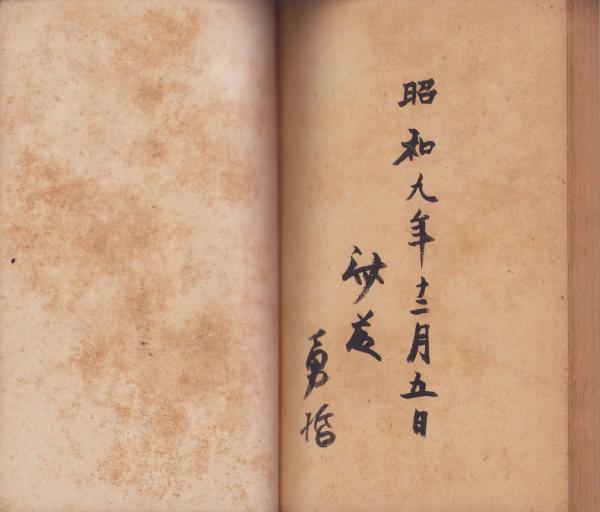 昭和九年十二月五日
勇哲